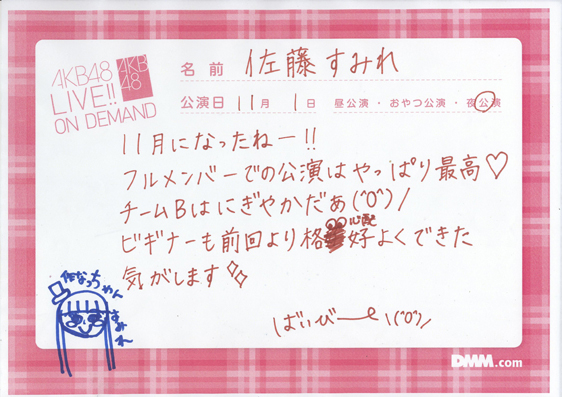 AKB48
LIVE!!
ON DEMAND
AKB
48
名前 佐藤すみれ
公演日 11月 1日 昼公演・おやつ公演・夜公演
11月になったねー!!
フルメンバーでの公演はやっぱり最高♡
チームBはにぎやかだぁ(^O^)/
心配
ビギナーも前回より格好よくできた
気がします
ばいびーe \(^O^)/
なっちゃん
すみれ
DMM.com